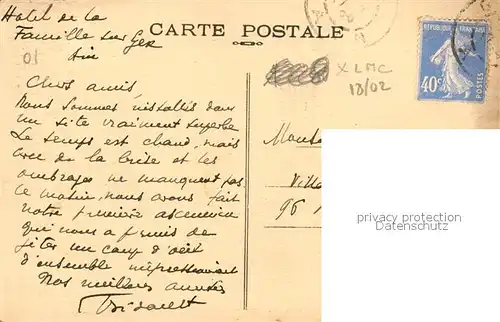 Hotel de la
Faucille sur Gex
Ain
01
CARTE POSTALE
REPUBLIQUE FRANÇAISE
40c
POSTES
X LMC
18/02
Chers amis,
Nous sommes installés dans
un site vraiment superbe
Le temps est chaud, mais
avec de la brise et les
ombrages ne manquent pas.
Ce matin, nous avons fait
notre première ascension
qui nous a permis de
jeter un coup d'œil
d'ensemble impressionnant
Nos meilleures amitiés
Villa
96
privacy protection
Datenschutz